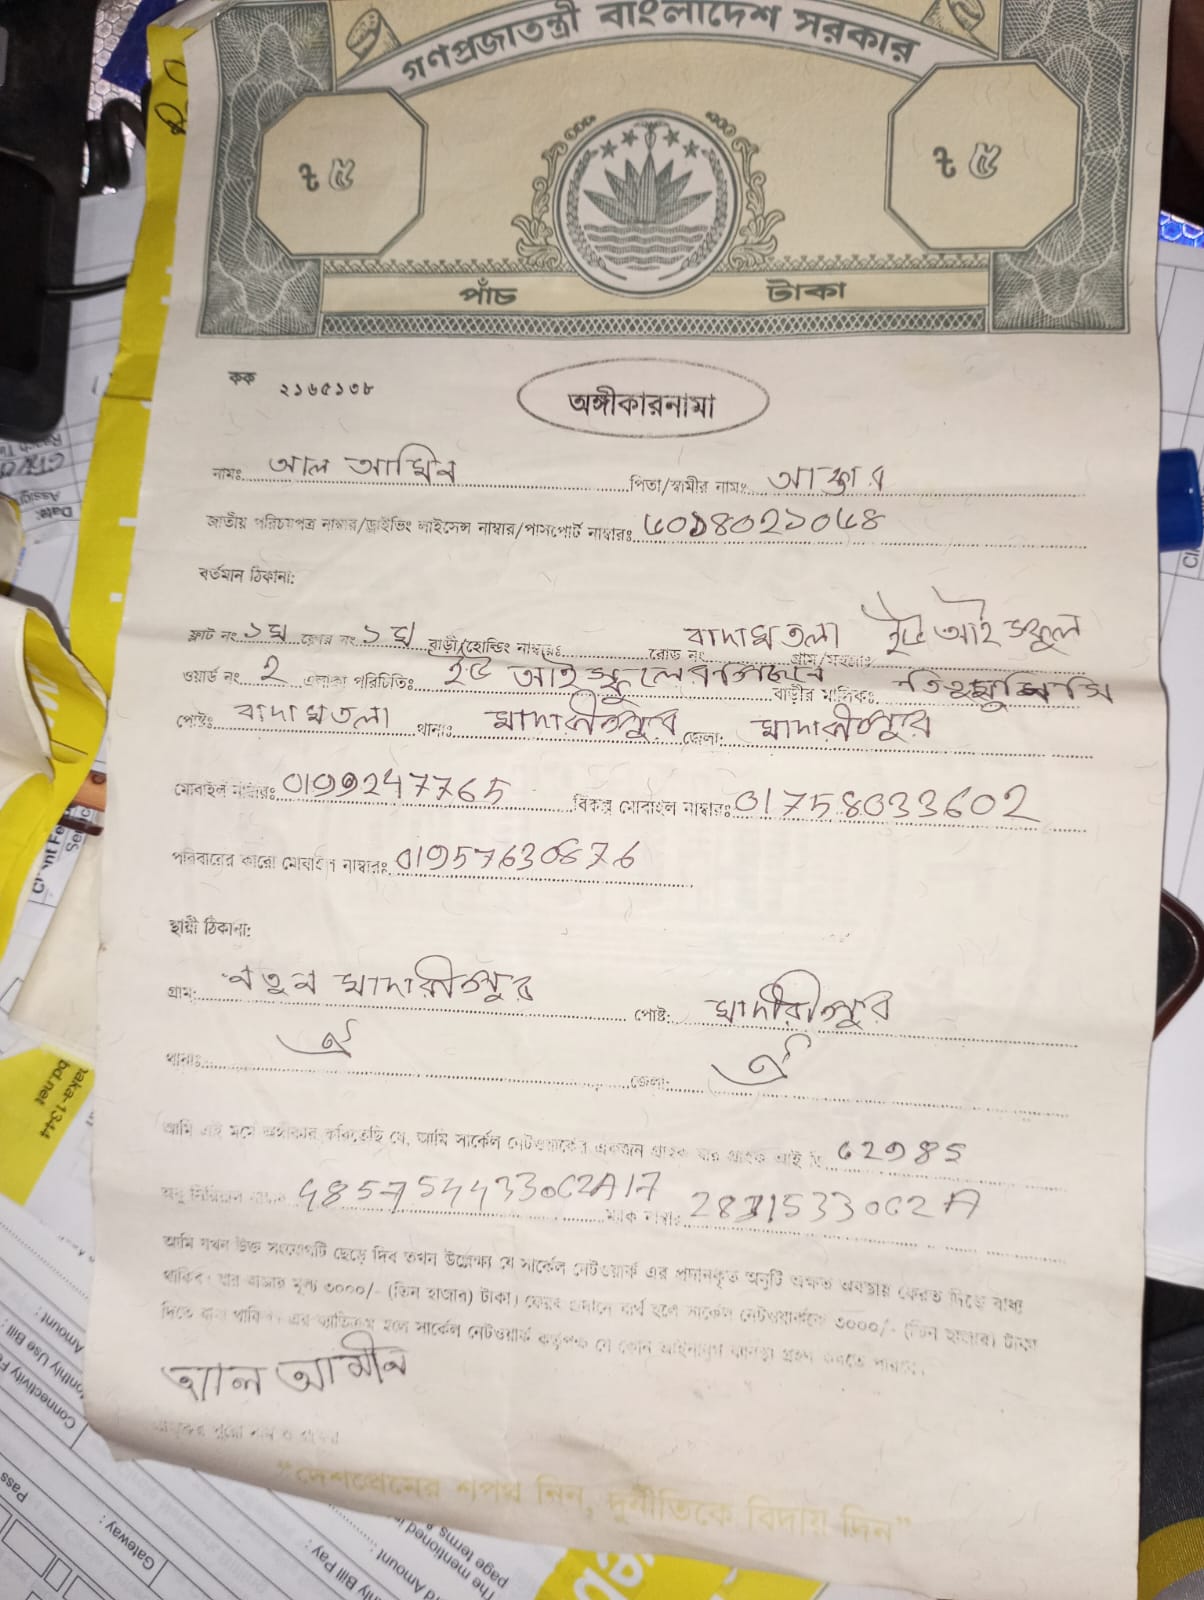 গণপ্রজাতন্ত্রী বাংলাদেশ সরকার
৳ ৫ ৳ ৫
পাঁচ টাকা
কক ২১৬৫১৩৮
অঙ্গীকারনামা
নামঃ আল আমিন পিতা/স্বামীর নামঃ
জাতীয় পরিচয়পত্র নাম্বার/ড্রাইভিং লাইসেন্স নাম্বার/পাসপোর্ট নাম্বারঃ
বর্তমান ঠিকানা:
ফ্লাট নং ১ম ফ্লোর নং ১ম বাড়ী/হোল্ডিং নাম্বারঃ রোড নং বাদামতলা গ্রাম/মহল্লাঃ ইউ আই স্কুল
ওয়ার্ড নং 2 এলাকা পরিচিতিঃ ইউ আই স্কুলের বাড়ীর মালিকঃ
পোষ্টঃ বাদামতলা থানাঃ মাদারীপুর জেলা: মাদারীপুর
মোবাইল নাম্বারঃ বিকল্প মোবাইল নাম্বারঃ 01758033602
পরিবারের কারো মোবাইল নাম্বারঃ 01957630876
স্থায়ী ঠিকানা:
গ্রাম: নতুন মাদারীপুর পোষ্ট: মাদারীপুর
থানাঃ ঐ জেলা: ঐ
আমি এই মর্মে অঙ্গীকার করিতেছি যে, আমি সার্কেল নেটওয়ার্কের একজন গ্রাহক যার গ্রাহক আইডি
অনু সিরিয়াল নাম্বার 4857544330C2A17 ম্যাক নাম্বাঃ
আমি যখন উক্ত সংযোগটি ছেড়ে দিব তখন উল্লেক্ষ্য যে সার্কেল নেটওয়ার্ক এর প্রদানকৃত অনুটি অক্ষত অবস্থায় ফেরত দিতে বাধ্য
থাকিব। যার বাজার মূল্য ৩০০০/- (তিন হাজার) টাকা। ফেরত প্রদানে ব্যর্থ হলে সার্কেল নেটওয়ার্ককে ৩০০০/- (তিন হাজার) টাকা
দিতে বাধ্য থাকিব। এর ব্যতিক্রম হলে সার্কেল নেটওয়ার্ক কর্তৃপক্ষ যে কোন আইনানুগ ব্যবস্থা গ্রহণ করতে পারবে।
আল আমীন
“দেশপ্রেমের শপথ নিন, দুর্নীতিকে বিদায় দিন”
The mentioned in
page terms
Amount
Bill Pay :
Gateway :
Pass
Connectivity
Monthly Use Bill :
Amount :
bd.net
aka-1344
Date: